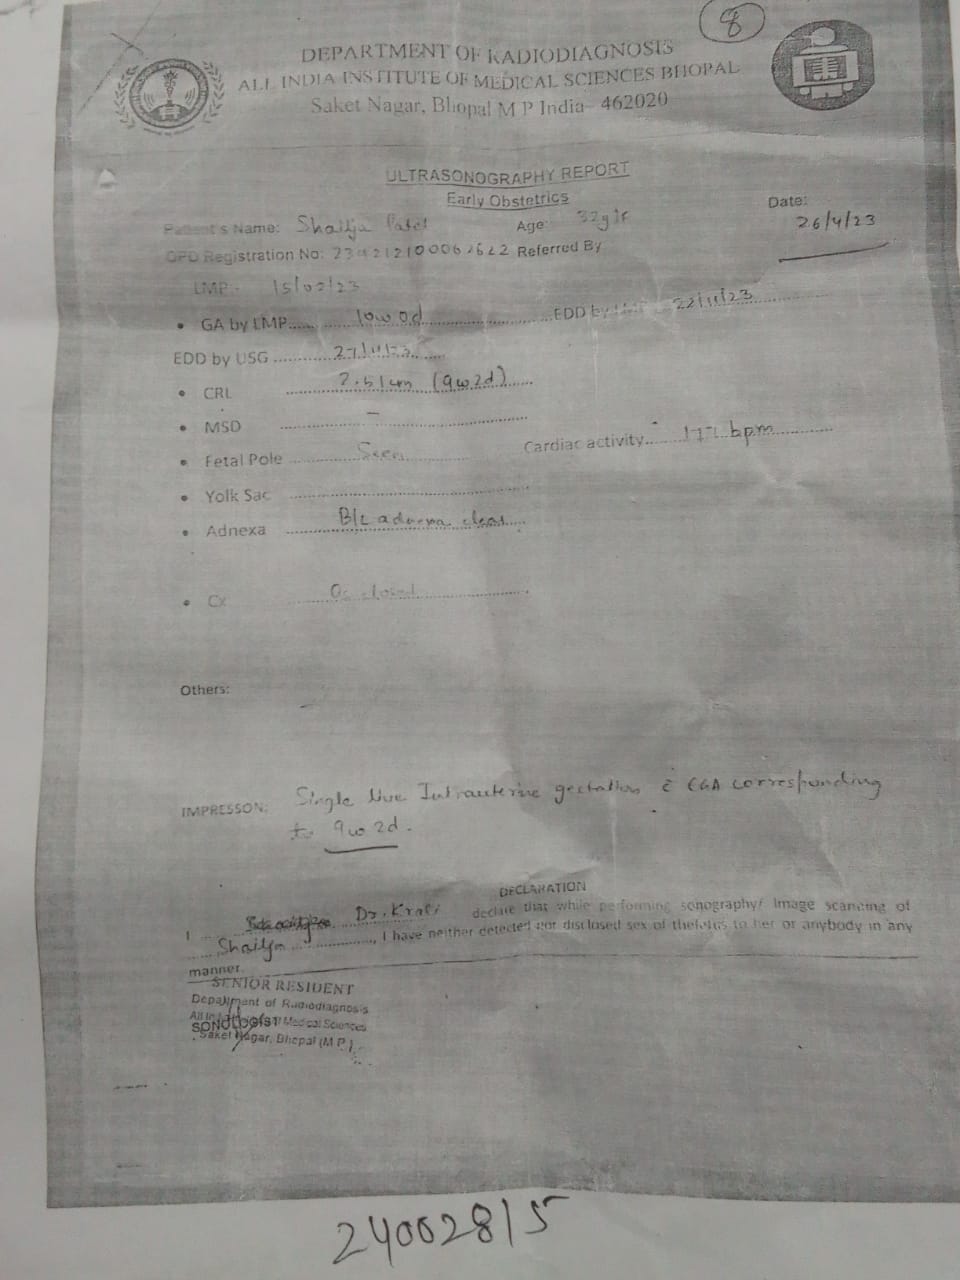 8
DEPARTMENT OF RADIODIAGNOSIS
ALL INDIA INSTITUTE OF MEDICAL SCIENCES BHOPAL
Saket Nagar, Bhopal M P India- 462020
ULTRASONOGRAPHY REPORT
Early Obstetrics
Date:
Patient's Name: Shailja Patel Age: 32y/F 26/4/23
OPD Registration No: Referred By
LMP:- 15/02/23
GA by LMP...... 10w 0d EDD by LMP 22/11/23
EDD by USG 27/11/23
CRL 2.51cm (9w2d)
MSD –
Fetal Pole Seen Cardiac activity bpm
Yolk Sac
Adnexa B/L adnexa clear
Cx Os closed
Others:
IMPRESSON: Single live Intrauterine gestation c̄ EGA corresponding
to 9w 2d.
DECLARATION
I Dr. Krati declare that while performing sonography/ Image scanning of
Shailja, I have neither detected nor disclosed sex of thefetus to her or anybody in any
manner.
SENIOR RESIDENT
Department of Radiodiagnosis
All India Institute of Medical Sciences
SONOLOGIST
Saket Nagar, Bhopal (M P)
24002815